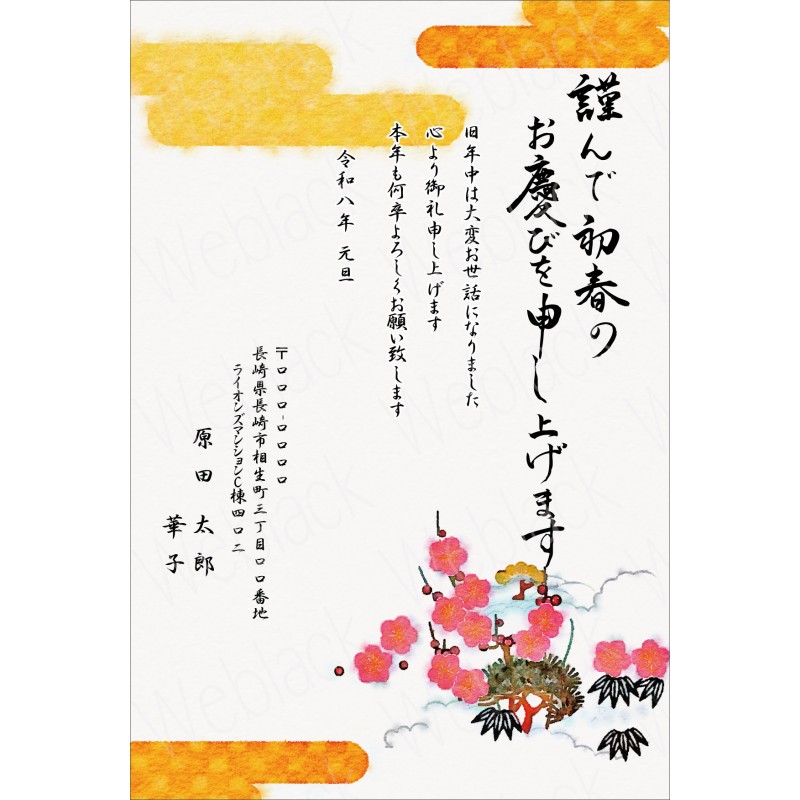 謹んで初春の
お慶びを申し上げます
旧年中は大変お世話になりました
心より御礼申し上げます
本年も何卒よろしくお願い致します
令和八年 元旦
〒□□□-□□□□
長崎県長崎市相生町三丁目□□番地
ライオンズマンションC棟四〇二
原田 太郎
華子
Weblack